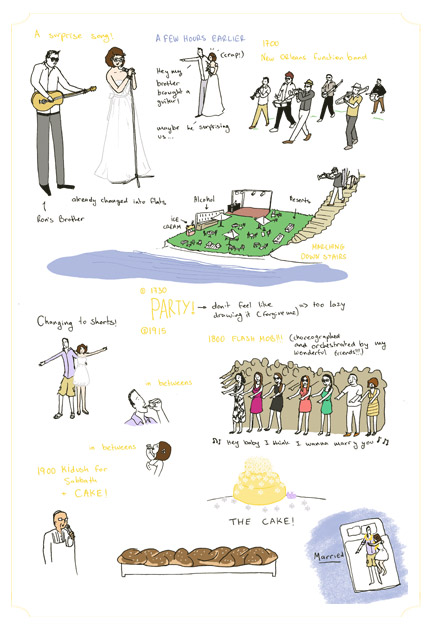 A surprise song!
A FEW HOURS EARLIER
(crap!)
Hey my
brother
brought a
guitar!
maybe he surprising
us...
1700
New Orleans Function band
already changed into flats
Ron's Brother
Alcohol
ICE
CREAM
Resents
MARCHING
DOWN STAIRS
@ 1930
PARTY!
→ don't feel like
drawing it (forgive me)
@1915
Changing to shorts!
1800 FLASH MOB!!
(choreographed
and orchestrated by my
wonderful friends!!!)
in betweens
in betweens
♪♪ Hey baby I think I wanna marry you ♪♪
1900 Kidush for
Sabbath
+ CAKE!
THE CAKE!
Married